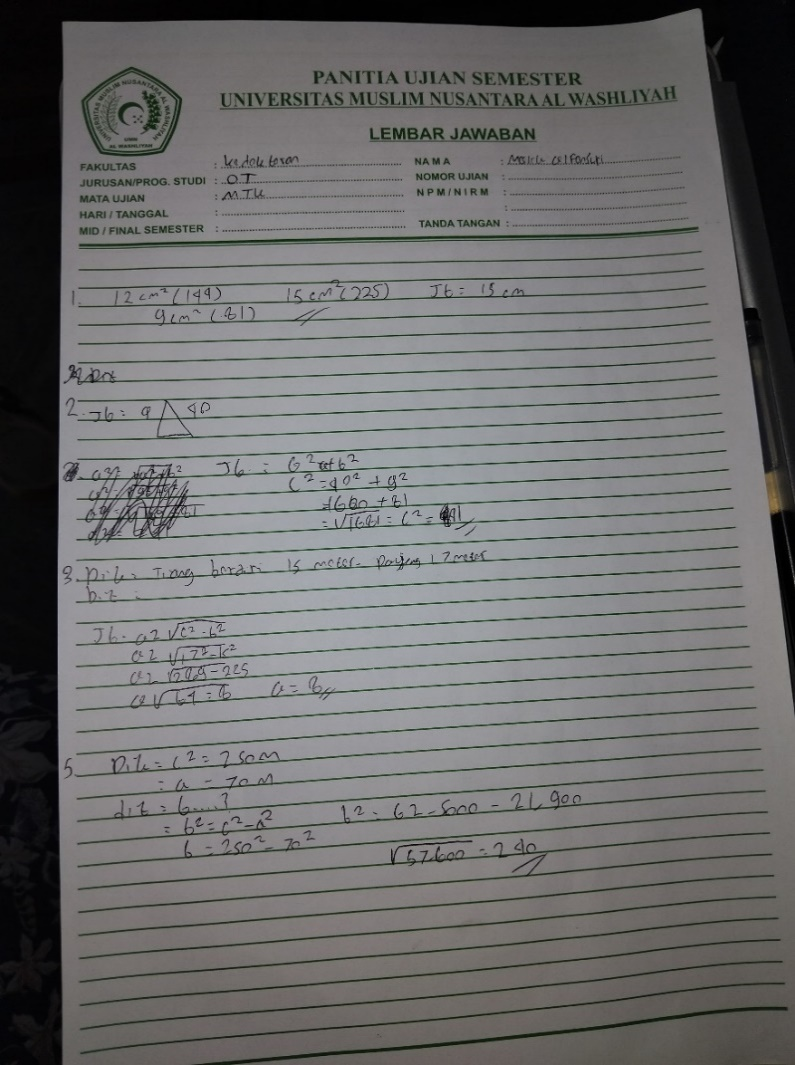 PANITIA UJIAN SEMESTER
UNIVERSITAS MUSLIM NUSANTARA AL WASHLIYAH
LEMBAR JAWABAN
UNIVERSITAS MUSLIM NUSANTARA AL WASHLIYAH
UMN
AL WASHLIYAH
FAKULTAS : kedokteran
JURUSAN/PROG. STUDI : OT
MATA UJIAN : MTK
HARI / TANGGAL :
MID / FINAL SEMESTER :
NAMA :
NOMOR UJIAN :
NPM/NIRM :
:
TANDA TANGAN :
1. 12 cm² (144) 15 cm² (225) Jb = 15 cm
9 cm² (81)
2. Jb = 9 40
Jb : b²
c² = 40² + 9²
1600 + 81
= √1681 = c² =
3. Dik = Tiang berdiri 15 meter - Panjang 17 meter
Dit :
Jb. a = √c² - b²
a = √17² - 15²
a = √289 - 225
a √64 = 8 a = 8
5. Dik = c² = 250 m
= a = 70 m
dit = b....?
= b² = c² - a²
b = 250² - 70²
b² = 62-5000 - 21,900
√57.600 = 240